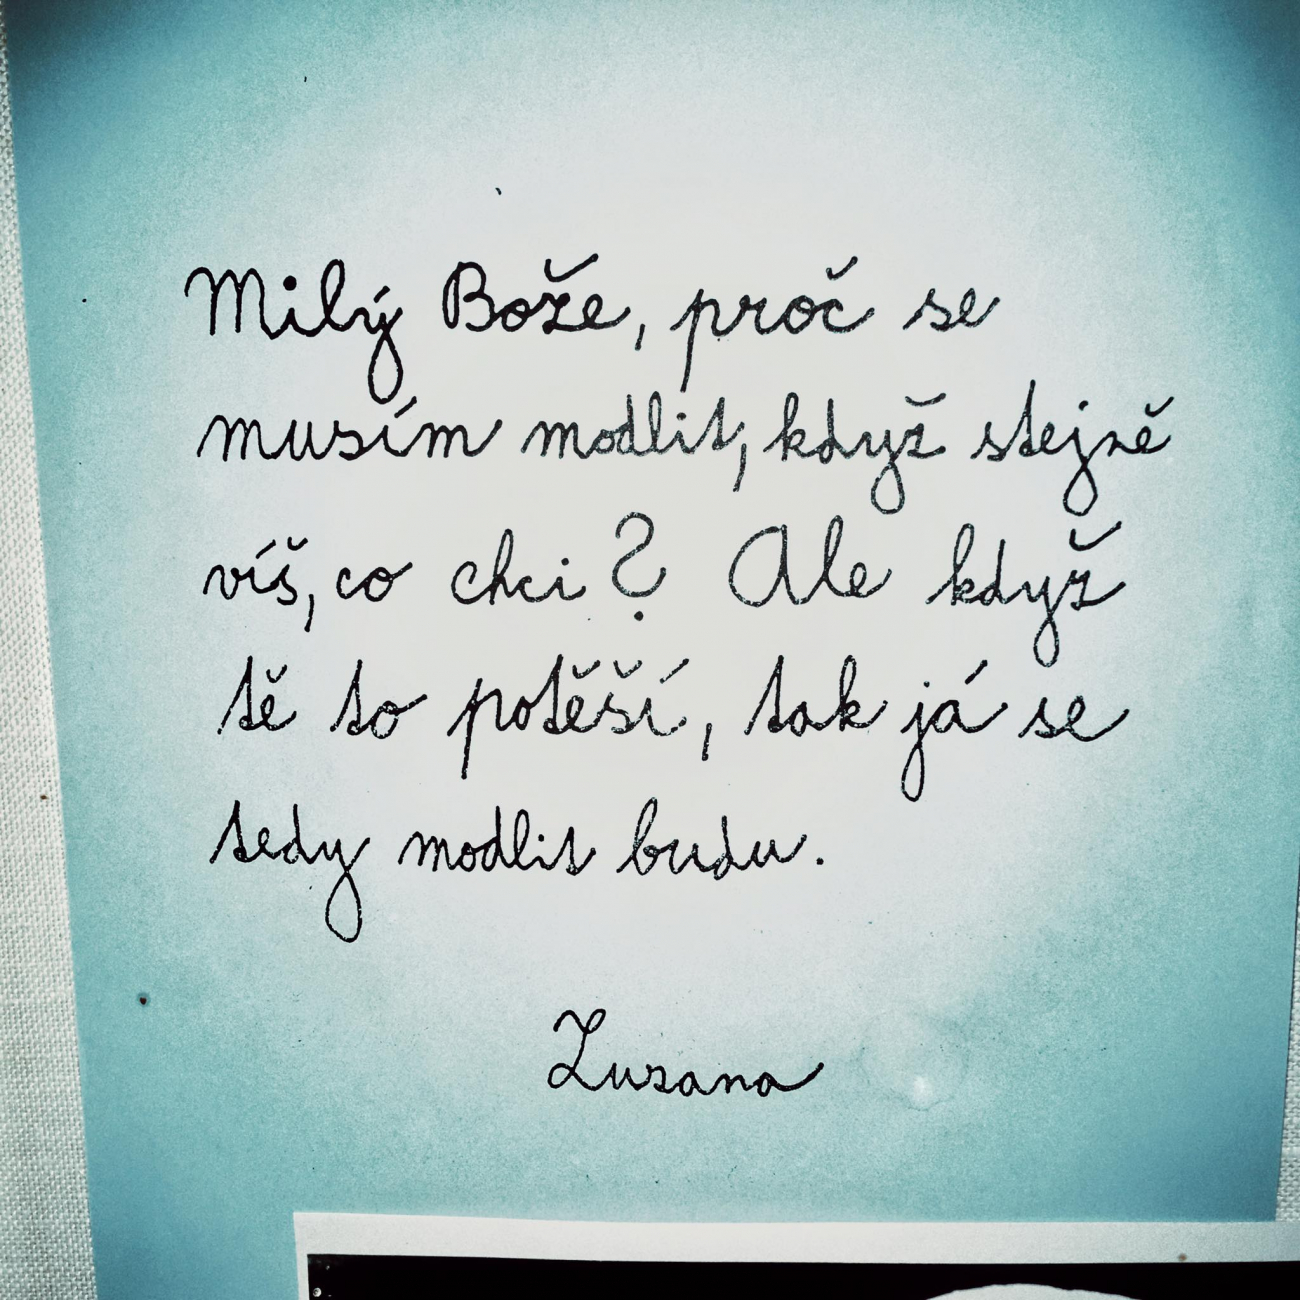 Milý Bože, proč se
musím modlit, když stejně
víš, co chci? Ale když
tě to potěší, tak já se
tedy modlit budu.
Zuzana